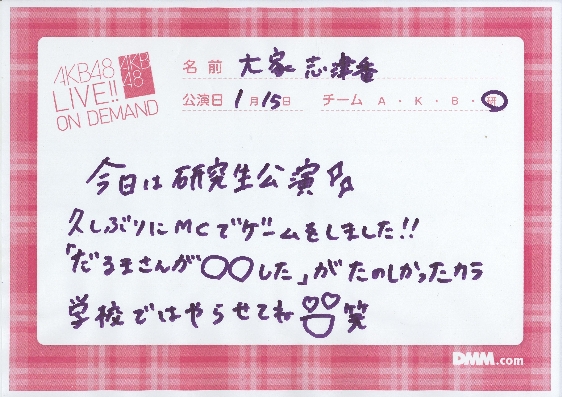 AKB48
LIVE!!
ON DEMAND
AKB
48
名前 大家志津香
公演日 1月15日 チーム A・K・B・研
今日は研究生公演♪♪
久しぶりにMCでゲームをしました!!
「だるまさんが○○した」がたのしかったカラ
学校ではやらせてね 笑
DMM.com